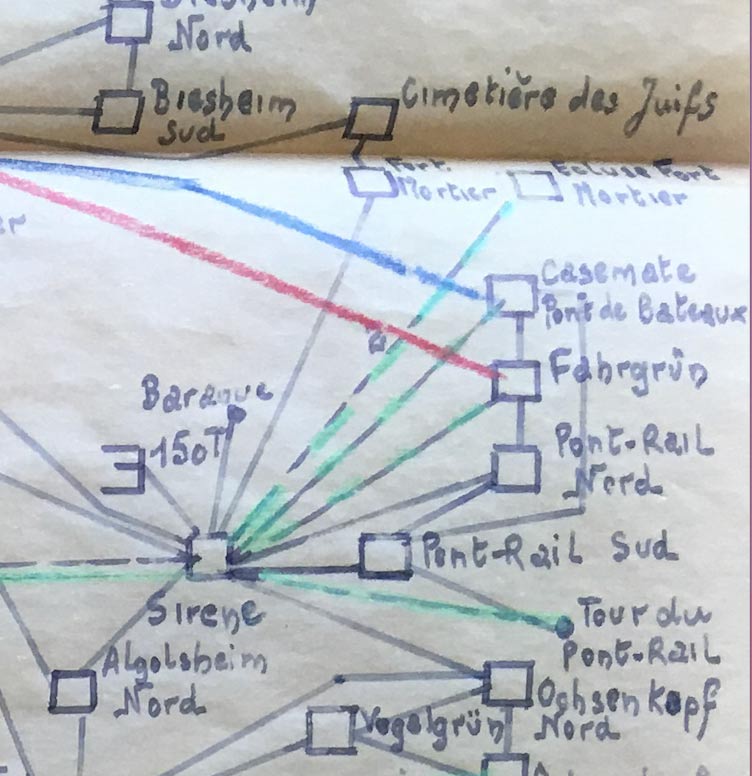 Nord
Biesheim
Sud
Cimetière des Juifs
Fort
Mortier
Ecluse Fort
Mortier
Casemate
Pont de Bateaux
Fahrgrün
Baraque
150T
Pont-Rail
Nord
Pont-Rail Sud
Sirene
Tour du
Pont-Rail
Algolsheim
Nord
Ochsenkopf
Nord
Vogelgrün